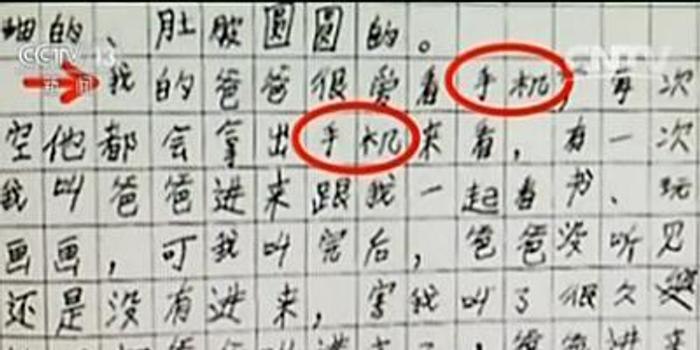 的、肚皮圆圆的。
CCTV 13
CNTV
新闻
我的爸爸很爱看手机,每次
空他都会拿出手机来看,有一次
我叫爸爸进来跟我一起看书、玩
画画,可我叫完后,爸爸没听见
还是没有进来,害我叫了很久